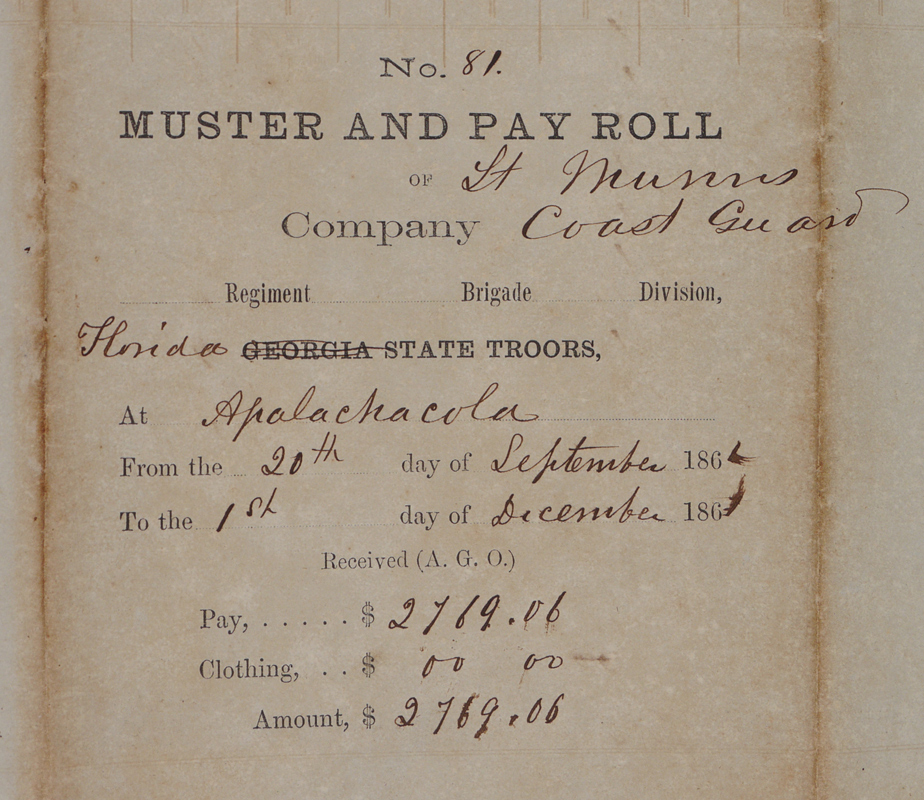 No. 81.
MUSTER AND PAY ROLL
OF Lt Munns
Company Coast Guard
Regiment Brigade Division,
Florida GEORGIA STATE TROORS,
At Apalachacola
From the 20th day of September 186
To the 1st day of December 1861
Received (A. G. O.)
Pay, ..... $ 2769.06
Clothing, .. $ 00 00
Amount, $ 2769.06